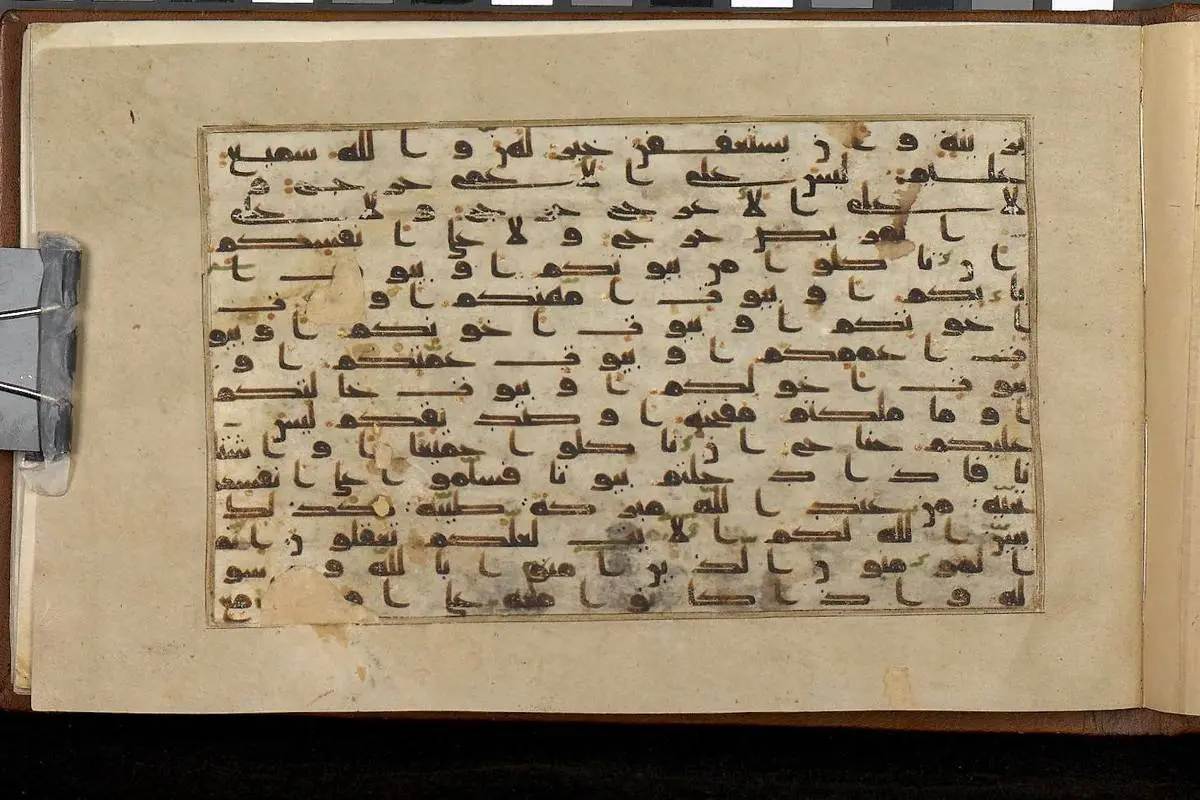 بزينة وان يستعففن خير لهن والله سميع
عليم ليس على الاعمى حرج و
لا على الاعرج حرج ولا على
المريض حرج ولا على انفسكم
ان تاكلوا من بيوتكم او بيوت ا
بائكم او بيوت امهتكم او بيوت
اخونكم او بيوت اخوتكم او بيو
ت اعممكم او بيوت عمتكم او
بيوت اخولكم او بيوت خلتكم
او ما ملكتم مفتحه او صديقكم ليس
عليكم جناح ان تاكلوا جميعا او اشتا
تا فاذا دخلتم بيوتا فسلموا على انفسكم
تحية من عند الله مبركة طيبة كذلك
يبين الله لكم الايت لعلكم تعقلون انما
المومنون الذين امنوا بالله ورسو
له واذا كانوا معه على امر